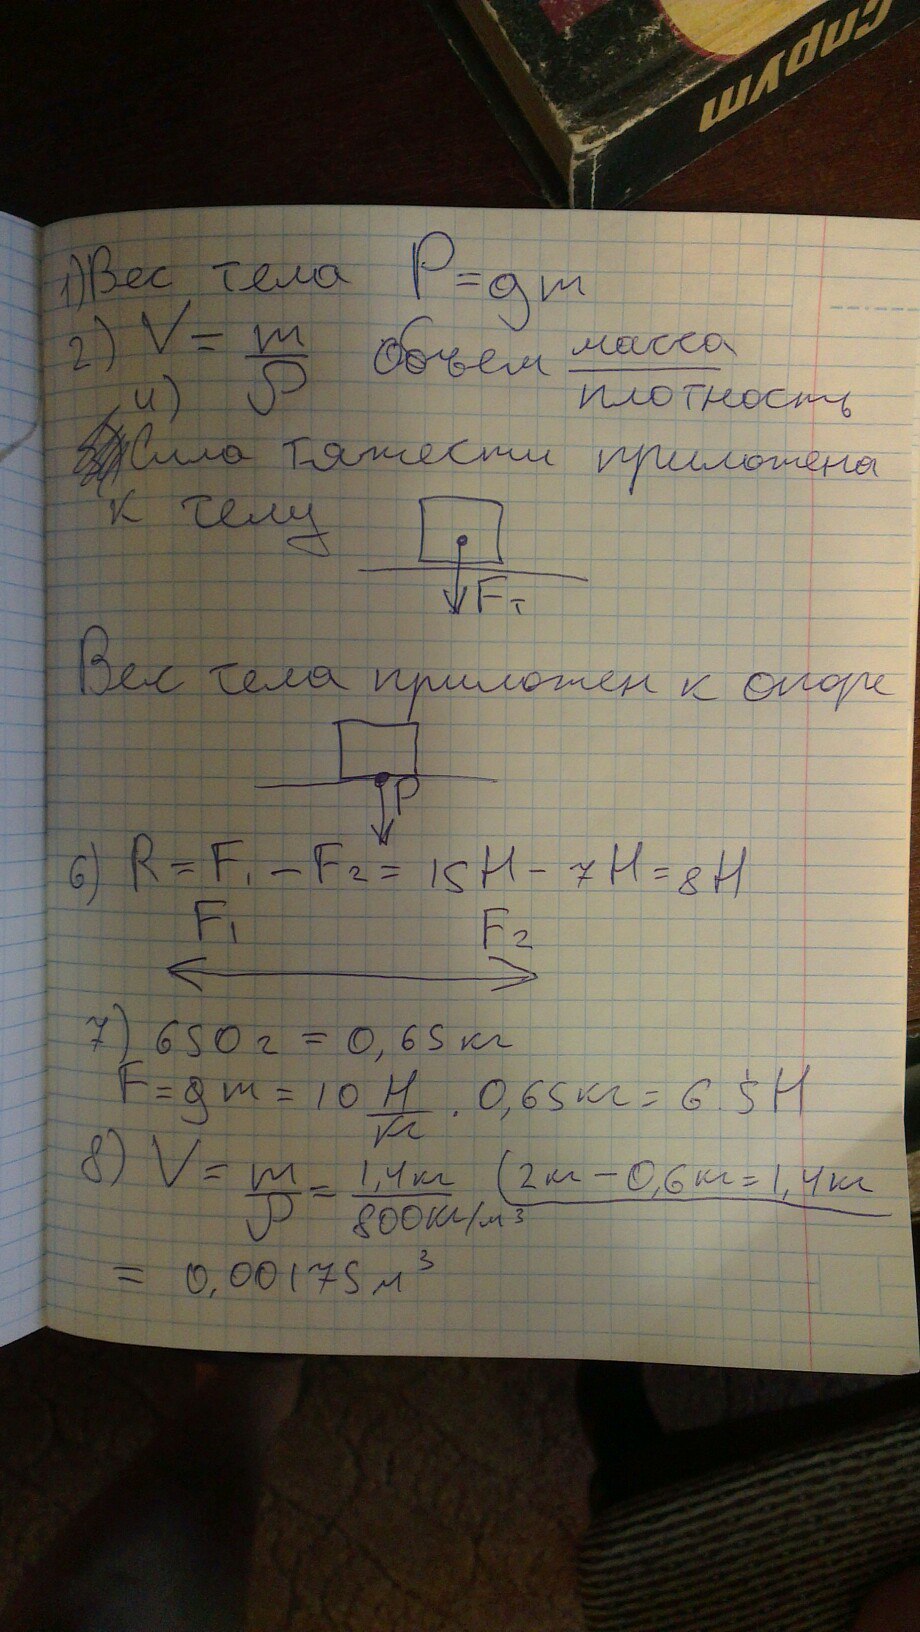 Спрут
1) Вес тела P = gm
2) V = m/ρ Обьем масса/плотность
4)
Сила тяжести приложена
к телу
Fт
Вес тела приложен к опоре
P
6) R = F₁ - F₂ = 15Н - 7Н = 8Н
F₁ F₂
7) 650г = 0,65кг
F = gm = 10 Н/кг · 0,65кг = 6.5Н
8) V = m/ρ = 1,4кг/800кг/м³ (2кг - 0,6кг = 1,4кг
= 0,00175м³